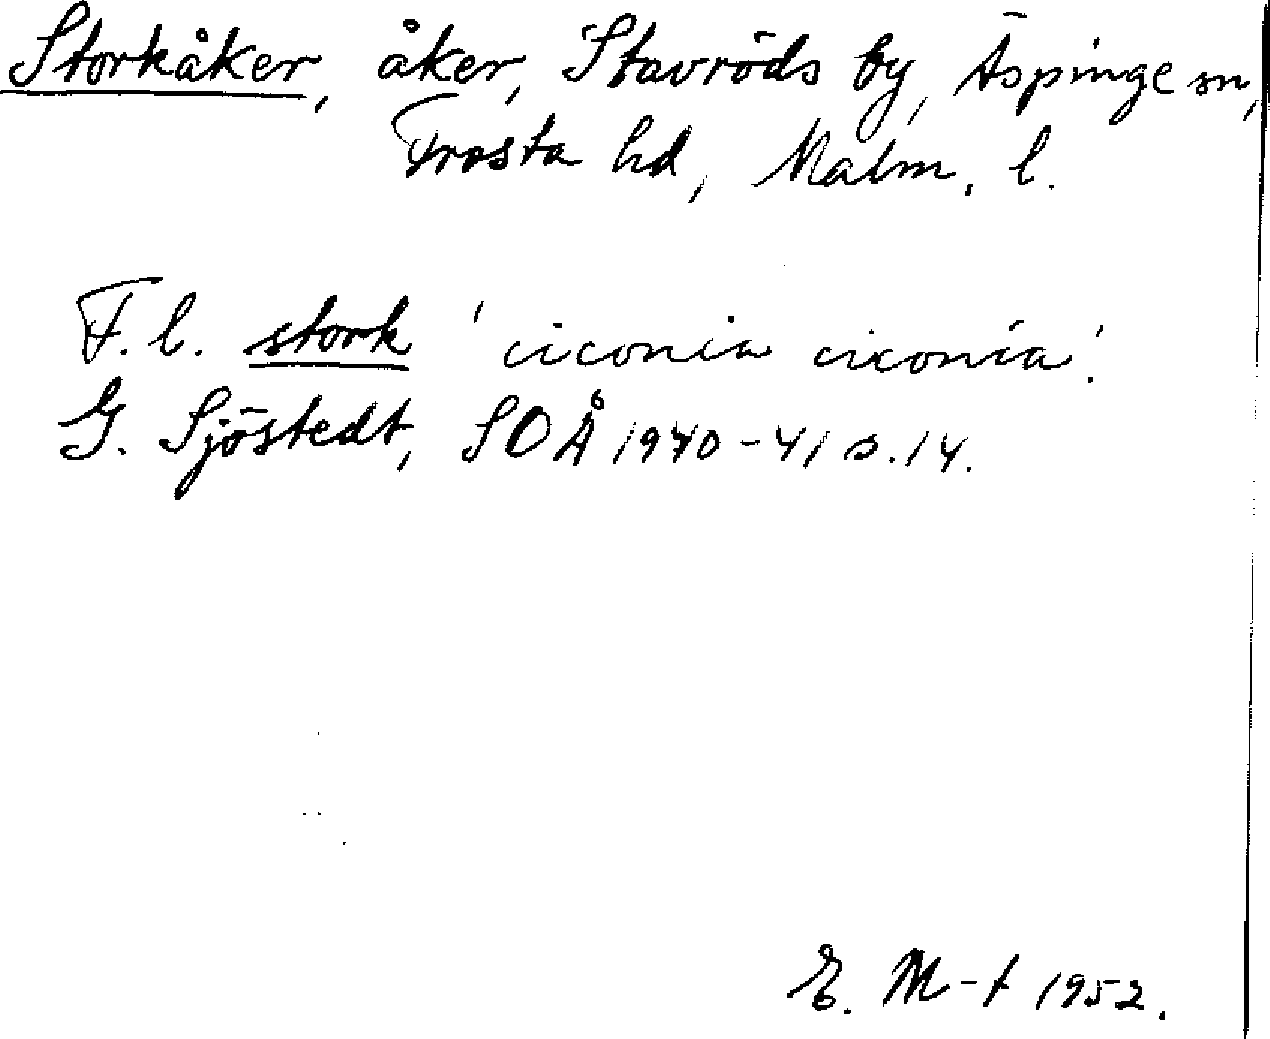 Storkåker, åker, Stavröds by, Äspinge sn,
Frosta hd, Malm. l.
F. l. stork 'ciconia ciconia'.
G. Sjöstedt, SOÅ 1940-41 s. 14.
E. M-t 1952.